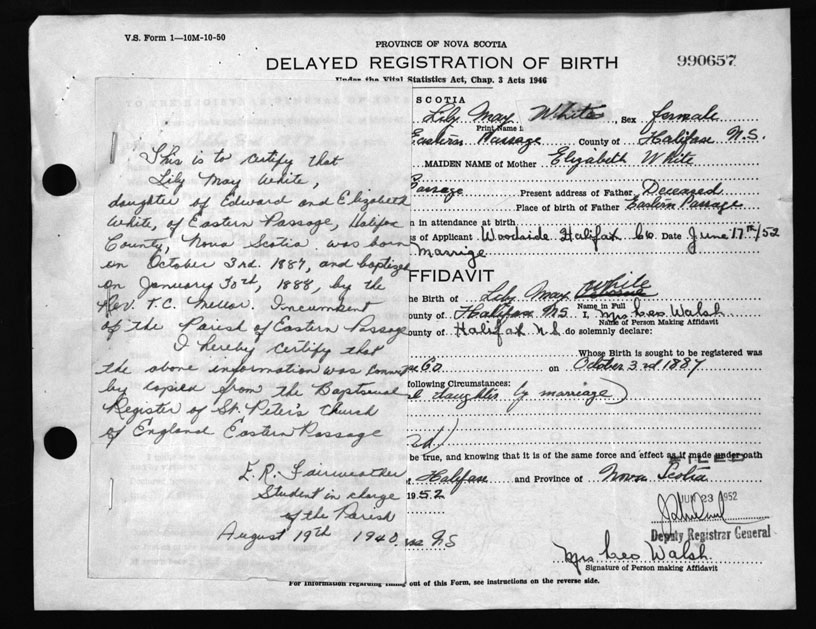 V.S. Form 1—10M-10-50
PROVINCE OF NOVA SCOTIA
DELAYED REGISTRATION OF BIRTH
990657
Under the Vital Statistics Act, Chap. 3 Acts 1946
This is to certify that
Lily May White,
daughter of Edward and Elizabeth
White, of Eastern Passage, Halifax
County, Nova Scotia. was born
on October 3rd. 1887, and baptized
on January 30th, 1888, by the
Rev. T.C. Mellor. Incumbent
of the Parish of Eastern Passage
I hereby certify that
the above information was
by copied from the Baptismal
Register of St. Peter's Church
of England Eastern Passage
E.R. Fairweather
Student in charge
of the Parish
August 19th 1940.
SCOTIA
Lily May White, Sex female
Print Name
Eastern Passage County of Halifax N.S.
MAIDEN NAME of Mother Elizabeth White
Passage Present address of Father Deceased
Place of birth of Father Eastern Passage
n in attendance at birth
s of Applicant Woodside Halifax Co. Date June 17th/52
Marrige
FFIDAVIT
White
he Birth of Lily May
Name in Full
ounty of Halifax NS I, Mrs Leo Walsh
Name of Person Making Affidavit
ounty of Halifax N.S. do solemnly declare:
Whose Birth is sought to be registered was
Co on October 3rd 1887
following Circumstances:
daughter by marriage)
ed)
be true, and knowing that it is of the same force and effect as if made under oath
FILED
f Halifax and Province of Nova Scotia
1952
JUN 23 1952
Deputy Registrar General
N.S
Mrs Leo Walsh.
Signature of Person making Affidavit
For information regarding filling out of this Form, see instructions on the reverse side.